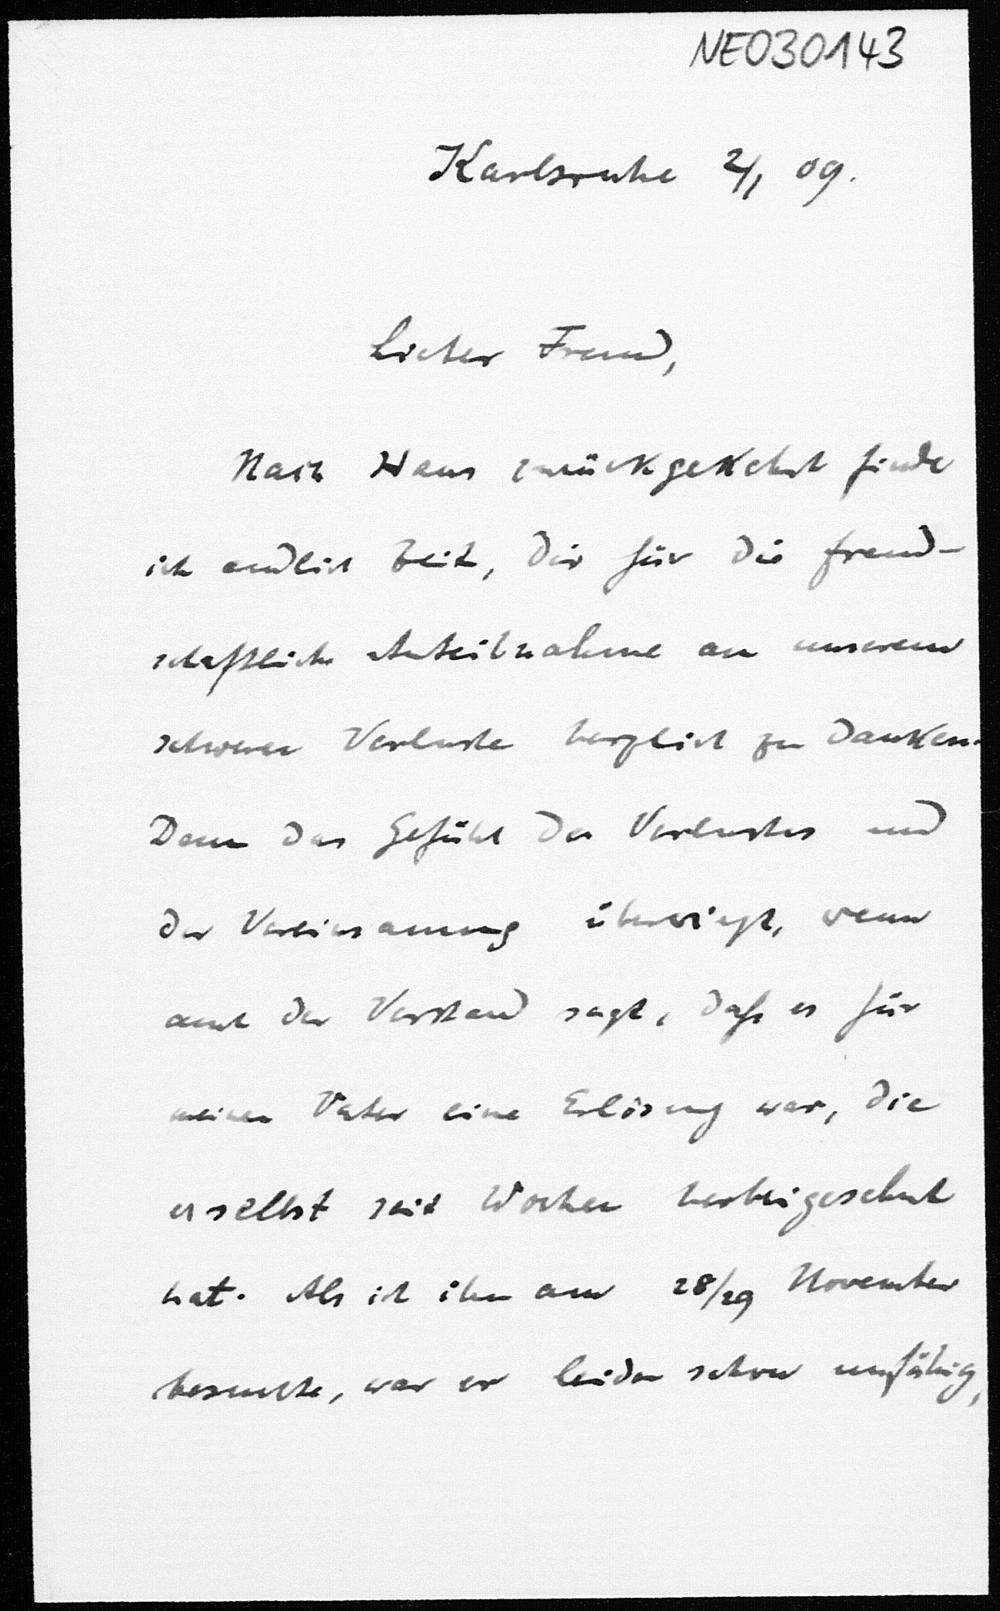 NE030143
Karlsruhe 2/1 09.
Lieber Freund,
Nach Haus zurückgekehrt finde
ich endlich Zeit, Dir für die freund-
schaftliche Anteilnahme an unserem
schweren Verluste herzlich zu danken.
Denn das Gefühl des Verlustes und
der Vereinsamung überwiegt, wenn
auch der Verstand sagt, daß es für
meinen Vater eine Erlösung war, die
er selbst seit Wochen herbeigesehnt
hat. Als ich ihn am 28/29 November
besuchte, war er leider schon unfähig,